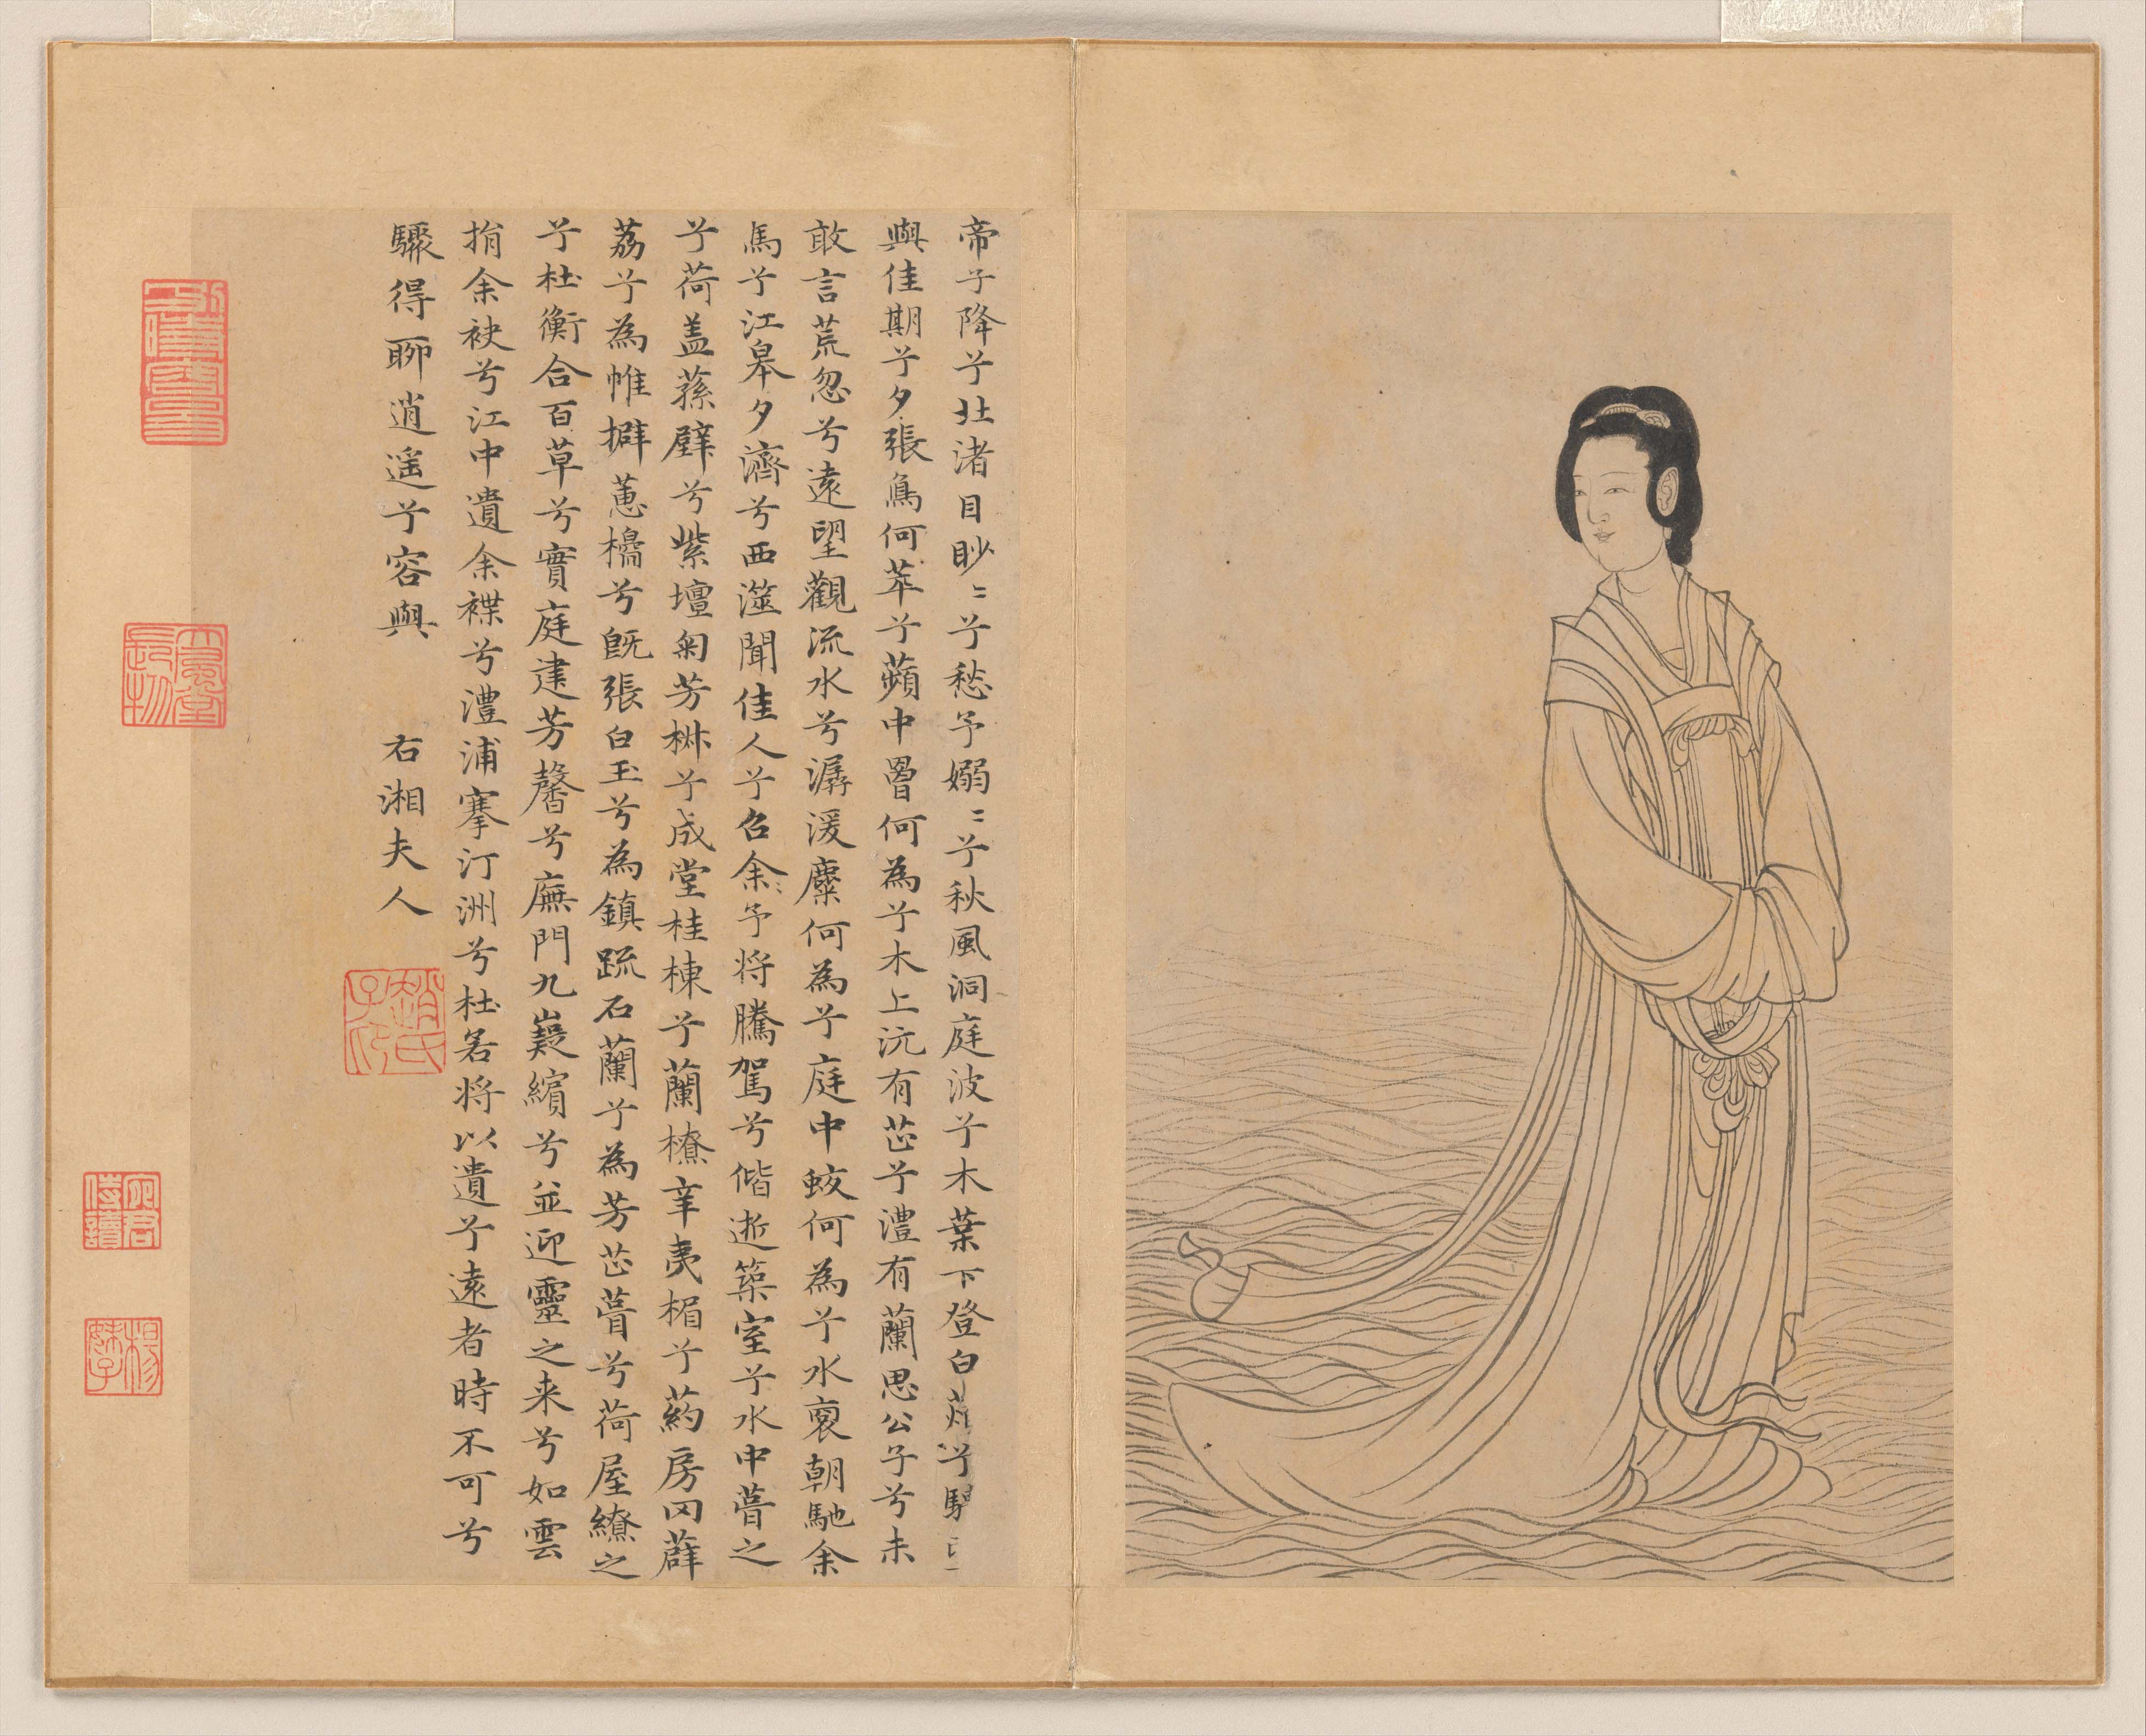 帝子降兮北渚目眇〻兮愁予嫋〻兮秋風洞庭波兮木葉下登白
與佳期兮夕張鳥何萃兮蘋中罾何為兮木上沅有芷兮澧有蘭思公子兮未
敢言荒忽兮遠望觀流水兮潺湲麋何為兮庭中蛟何為兮水裔朝馳余
馬兮江皋夕濟兮西澨聞佳人兮召余予將騰駕兮偕逝築室兮水中葺之
兮荷盖蓀壁兮紫壇匊芳椒兮成堂桂棟兮蘭橑辛夷楣兮葯房罔薜
荔兮為帷擗蕙櫋兮既張白玉兮為鎮疏石蘭兮為芳芷葺兮荷屋繚之
兮杜衡合百草兮實庭建芳馨兮廡門九嶷繽兮並迎靈之来兮如雲
捐余袂兮江中遺余褋兮澧浦搴汀洲兮杜若将以遺兮遠者時不可兮
驟得聊逍遥兮容與 右湘夫人
趙氏子昂